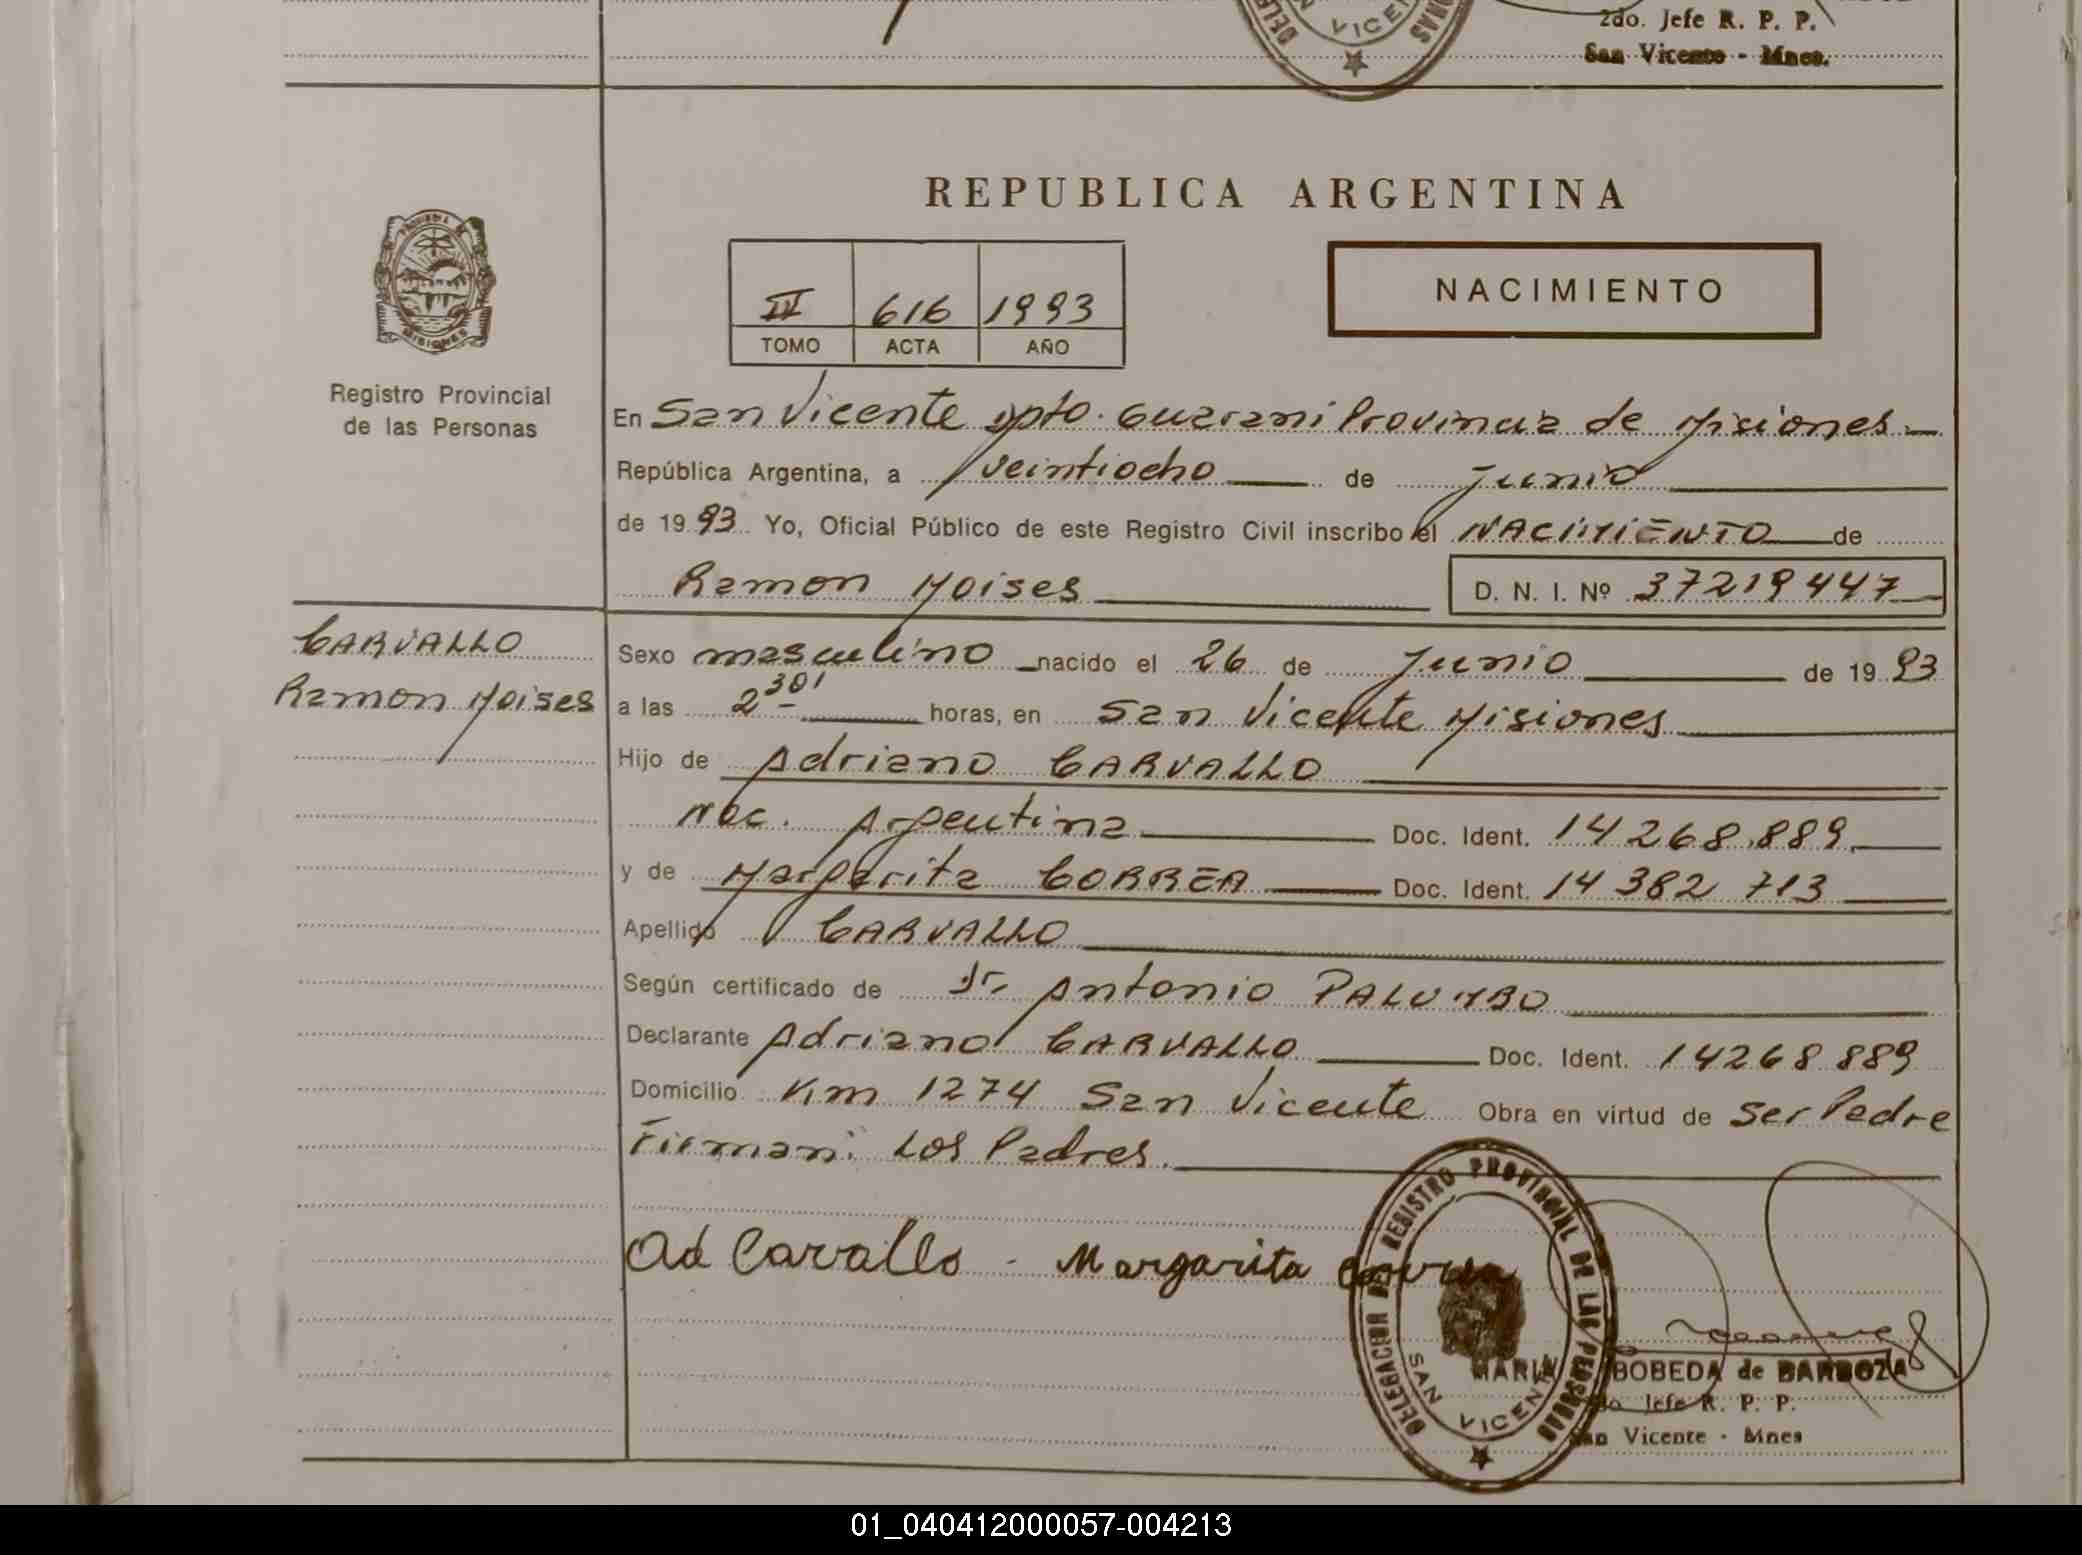 2do. Jefe R. P. P.
San Vicente - Mnes.
SAN VICEN
REPUBLICA ARGENTINA
PROVINCIA DE
MISIONES
Registro Provincial
de las Personas
616 1993
TOMO ACTA AÑO
NACIMIENTO
En San Vicente dpto. Guarani Provincia de Misiones
República Argentina, a veintiocho de Junio
de 1993 Yo, Oficial Público de este Registro Civil inscribo el NACIMIENTO de
Ramon Moises D. N. I. Nº 37219447
CARVALLO
Ramon Moises
Sexo masculino nacido el 26 de Junio de 1993
a las 2 30' horas, en San Vicente Misiones
Hijo de Adriano CARVALLO
Nac. Argentina Doc. Ident. 14268.889
y de Margarita CORREA Doc. Ident. 14 382 713
Apellido CARVALLO
Según certificado de Dr. Antonio PALUMBO
Declarante Adriano CARVALLO Doc. Ident. 14268 889
Domicilio Km 1274 San Vicente Obra en virtud de ser Padre
Firman: Los Padres.
Ad Carvallo - Margarita Correa
DELEGACION DEL REGISTRO PROVINCIAL DE LAS PERSONAS
SAN VICENTE
BOBEDA de BARBOZA
2do. Jefe R. P. P.
San Vicente - Mnes
01_040412000057-004213